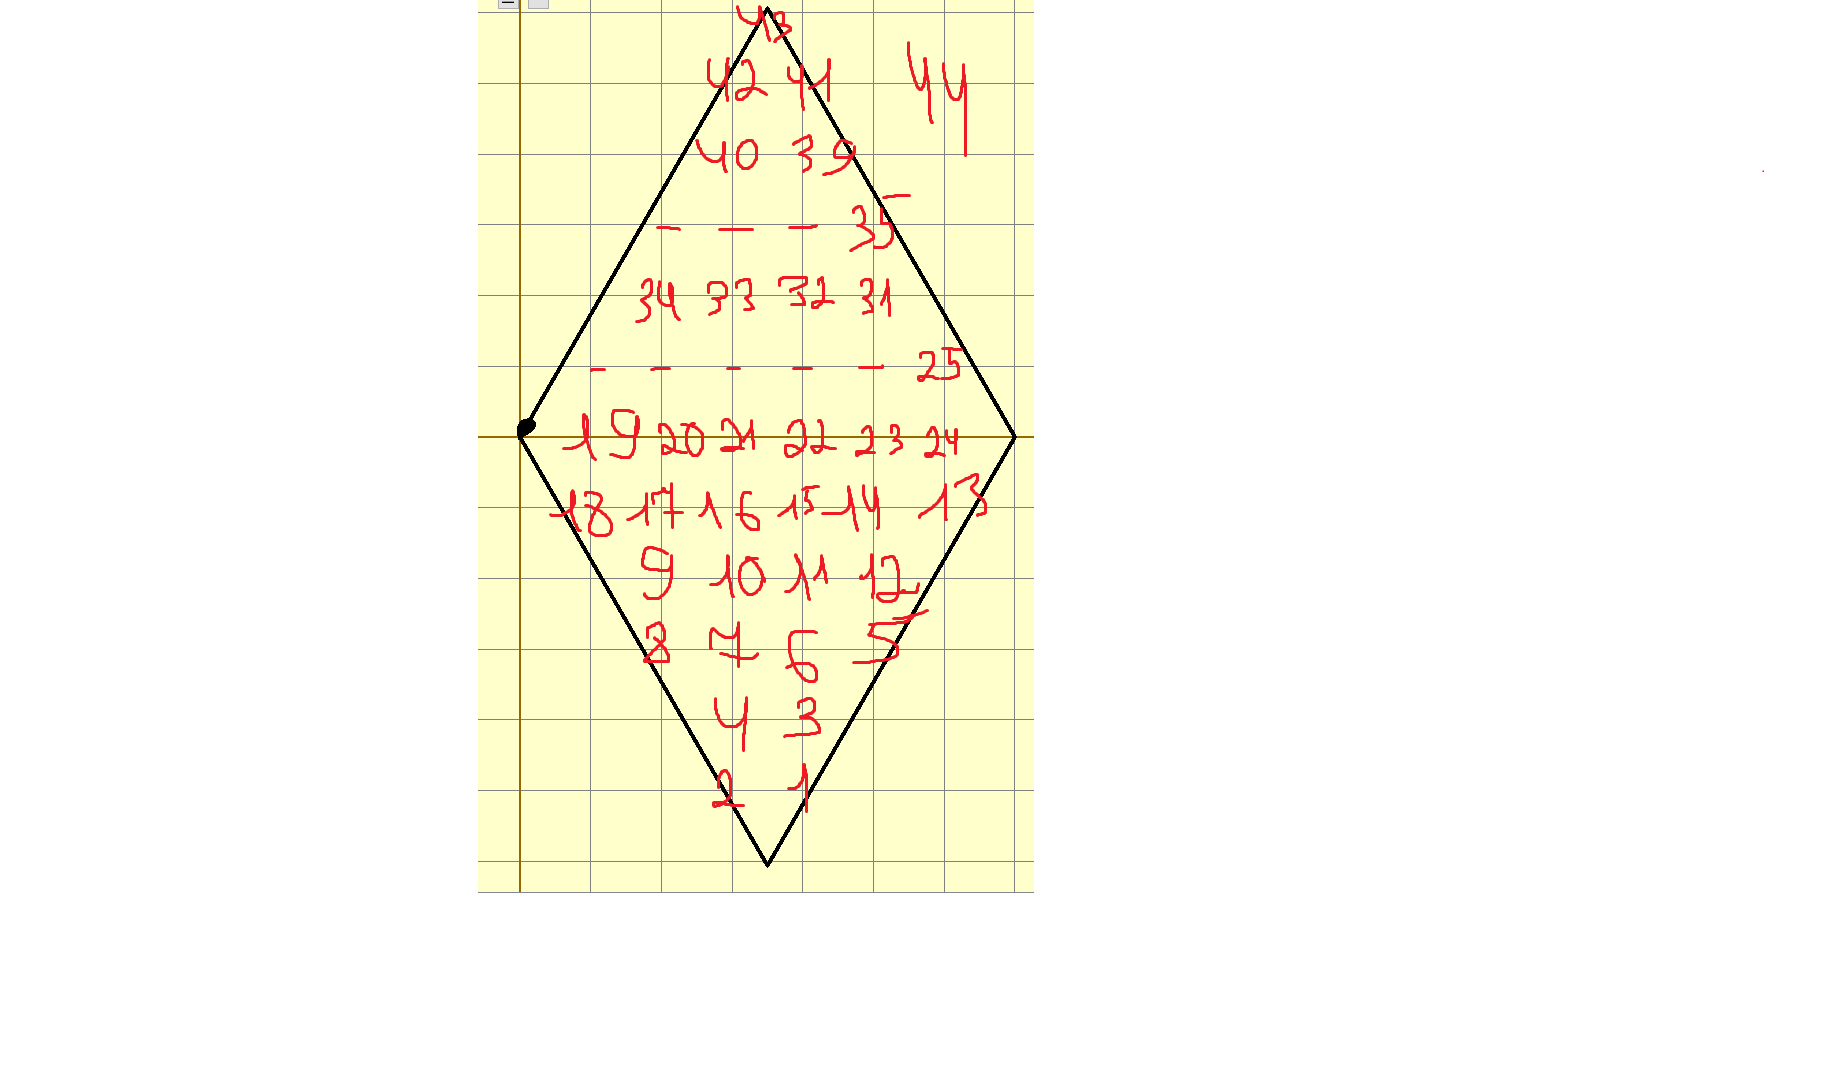 43
42 41 44
40 39
- - - 35
34 33 32 31
- - - - - 25
19 20 21 22 23 24
18 17 16 15 14 13
9 10 11 12
8 7 6 5
4 3
2 1